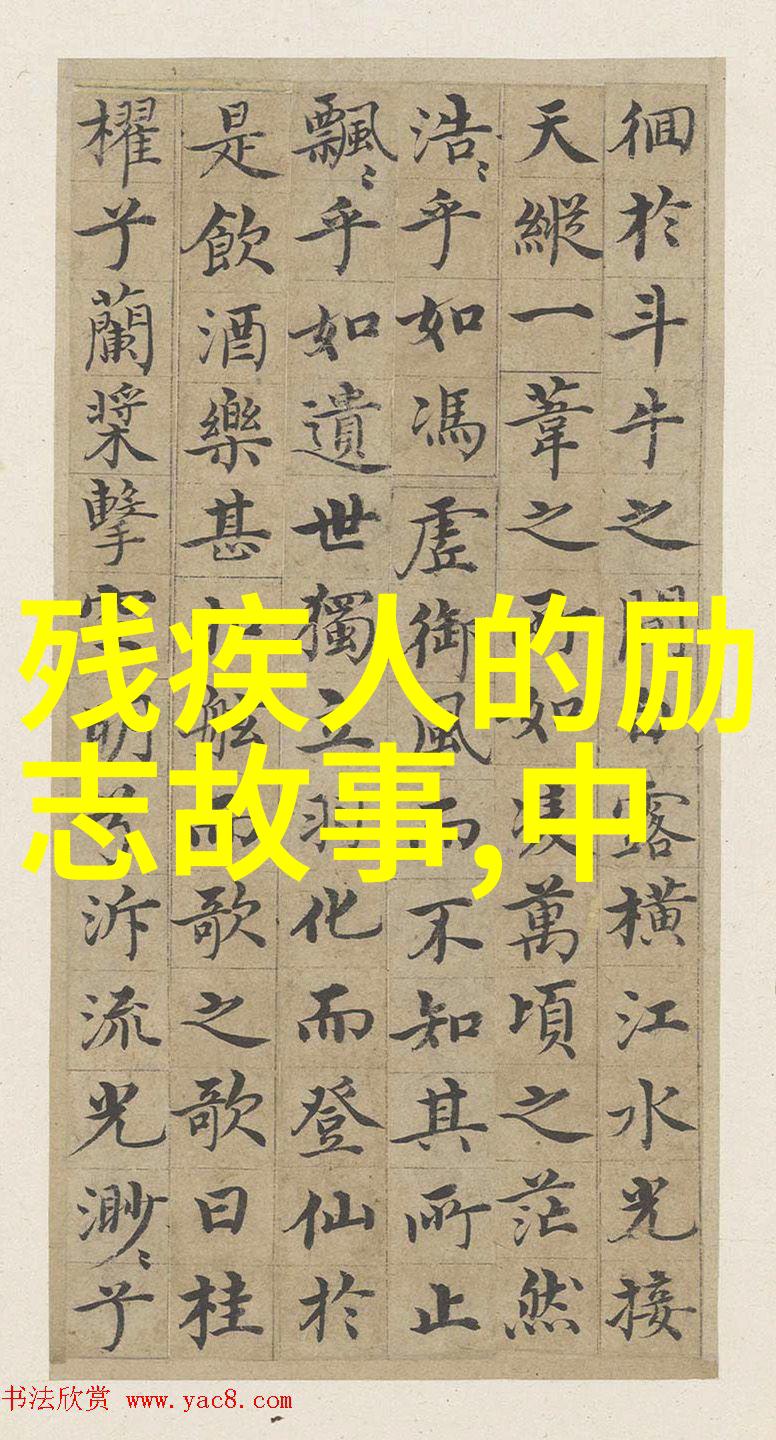 徊於斗牛之間白露橫江水光接
天縱一葦之所如凌萬頃之茫然
浩〻乎如馮虛御風而不知其所止
飄〻乎如遺世獨立羽化而登仙於
是飲酒樂甚扣舷而歌之歌曰桂
櫂兮蘭槳擊空明兮泝流光渺〻兮
残疾人的励
志故事,中
书法欣赏 www.yac8.com